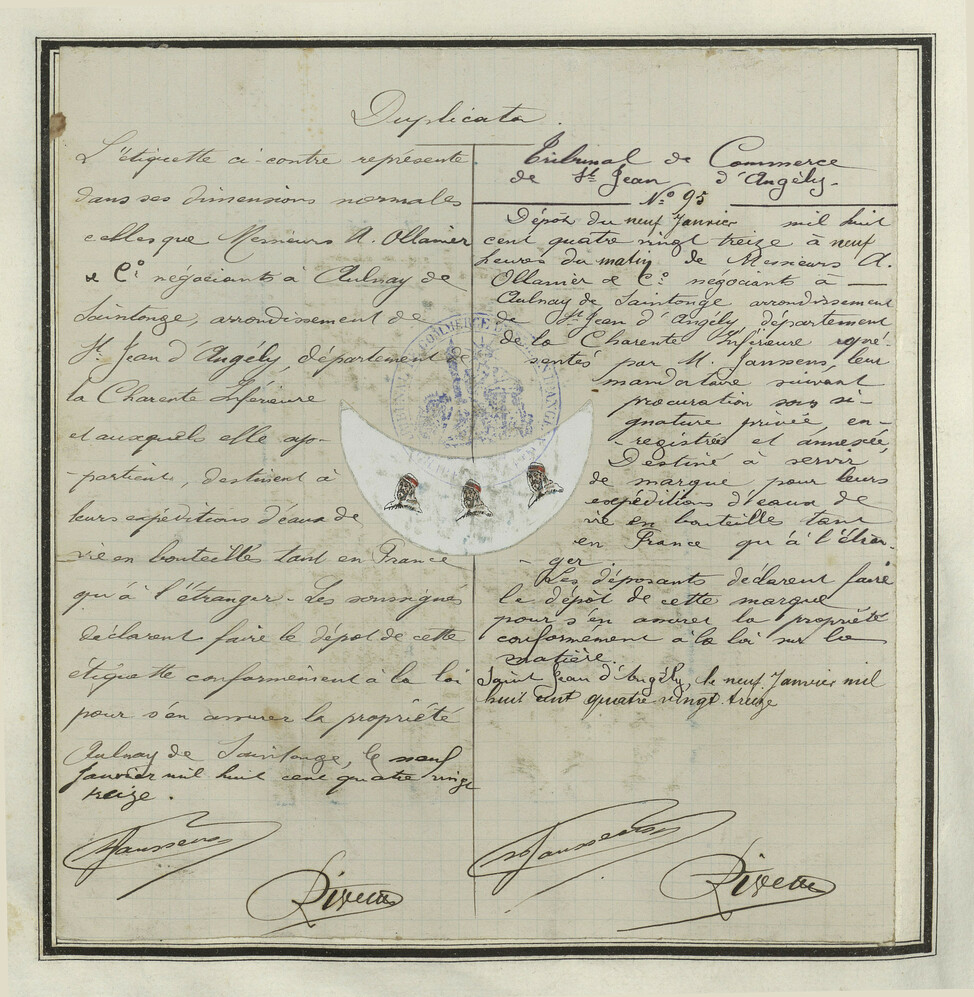 Duplicata.
L'étiquette ci-contre représente
dans ses dimensions normales
celles que Messieurs A. Ollanier
& Cº négociants à Aulnay de
Saintonge, arrondissement de
St Jean d'Angély, département de
la Charente Inférieure
et auxquels elle ap-
-partient, destinent à
leurs expéditions d'eaux de
vie en bouteilles tant en France
qu'à l'étranger. Les soussignés
déclarent faire le dépot de cette
étiquette conformément à la loi
pour s'en assurer la propriété
Aulnay de Saintonge, le neuf
Janvier mil huit cent quatre vingt
treize.
Janssens
Tribunal de Commerce
de St Jean d'Angély.
Nº 95
Dépôt du neuf Janvier mil huit
cent quatre vingt treize à neuf
heures du matin de Messieurs A.
Ollanier & Cº négociants à
Aulnay de Saintonge arrondissement
de St Jean d'Angély département
de la Charente Inférieure repré-
sentés par M. Janssens, leur
mandataire suivant
procuration sous si-
gnature privée, en-
-registrée et annexée,
Destiné à servir
de marque pour leurs
expéditions d'eaux de
vie en bouteille tant
en France qu'à l'étran-
-ger.
Les déposants déclarent faire
le dépôt de cette marque
pour s'en assurer la propriété
conformément à la loi sur la
matière.
Saint Jean d'Angély, le neuf Janvier mil
huit cent quatre vingt treize
Janssens